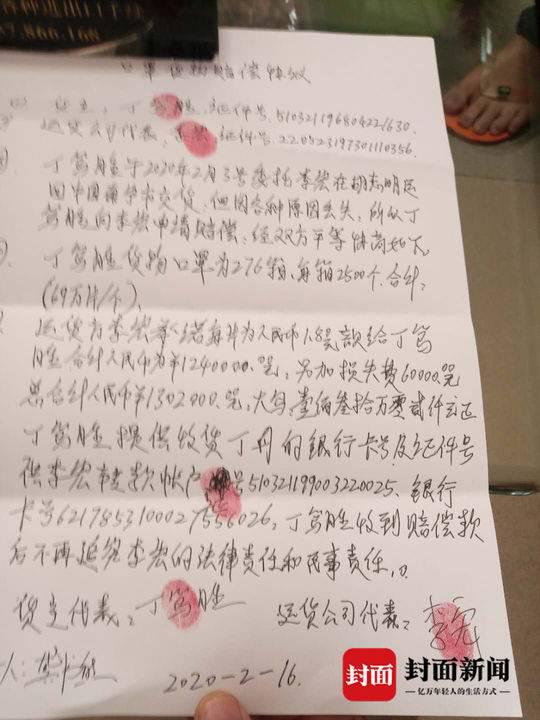 各种进出口手续
7.866.168
口罩货物赔偿协议
货主：丁笃胜，证件号：510321196804221630.
运货公司代表：李宏 证件号：220523197301110356.
丁笃胜于2020年2月3号委托李宏在胡志明运
回中国 市交货，但因各种原因丢失，所以丁
笃胜向李宏申请赔偿，经双方平等协商如下
丁笃胜货物口罩为276箱，每箱2500个，合计：
(69万片/个)、
运货方李宏 为人民币1.8元 款给丁笃
胜，合计人民币为￥1240000.元，另加损失费60000.元
总合计人民币￥1302000.元，大写：壹佰叁拾万零贰仟元正
丁笃胜提供收货丁丹的银行卡号及证件号
供李宏转款帐户 号510321199003220025、银行
卡号6217853100027556026，丁笃胜收到赔偿款
后不再追究李宏的法律责任和民事责任，
货主代表：丁笃胜 运货公司代表：李宏
人：
2020-2-16
封面 封面新闻
亿万年轻人的生活方式